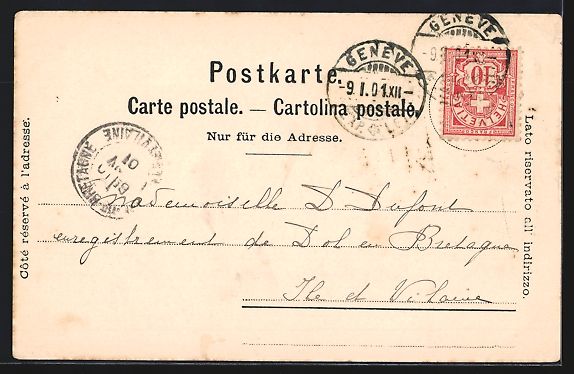 GENÈVE
-9.I.01.XII-
GENÈVE
10
HELVETIA
Postkarte.
Carte postale. — Cartolina postale.
Nur für die Adresse.
Côté réservé à l'adresse.
Lato riservato all' indirizzo.
BRETAGNE
01
Mademoiselle D Dufont
enregistrement de Dol en Bretagne
Ile et Vilaine